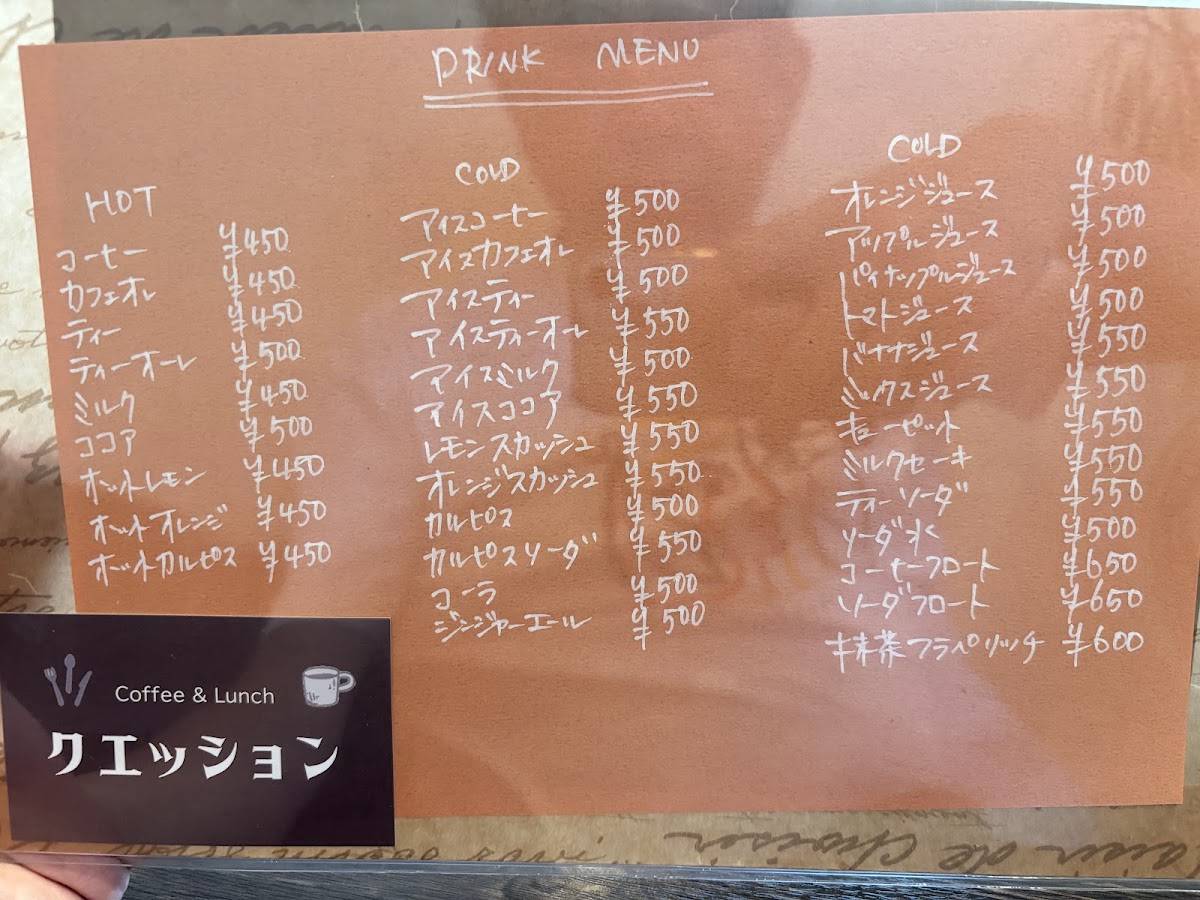 DRINK MENU
HOT
コーヒー ¥450
カフェオレ ¥450
ティー ¥450
ティーオーレ ¥500
ミルク ¥450
ココア ¥500
ホットレモン ¥450
ホットオレンジ ¥450
ホットカルピス ¥450
COLD
アイスコーヒー ¥500
アイスカフェオレ ¥500
アイスティー ¥500
アイスティーオーレ ¥550
アイスミルク ¥500
アイスココア ¥550
レモンスカッシュ ¥550
オレンジスカッシュ ¥550
カルピス ¥500
カルピスソーダ ¥550
コーラ ¥500
ジンジャーエール ¥500
COLD
オレンジジュース ¥500
アップルジュース ¥500
パイナップルジュース ¥500
トマトジュース ¥500
バナナジュース ¥550
ミックスジュース ¥550
キューピット ¥550
ミルクセーキ ¥550
ティーソーダ ¥550
ソーダ水 ¥500
コーヒーフロート ¥650
ソーダフロート ¥650
抹茶フラペリッチ ¥600
Coffee & Lunch
クエッション
de choisir